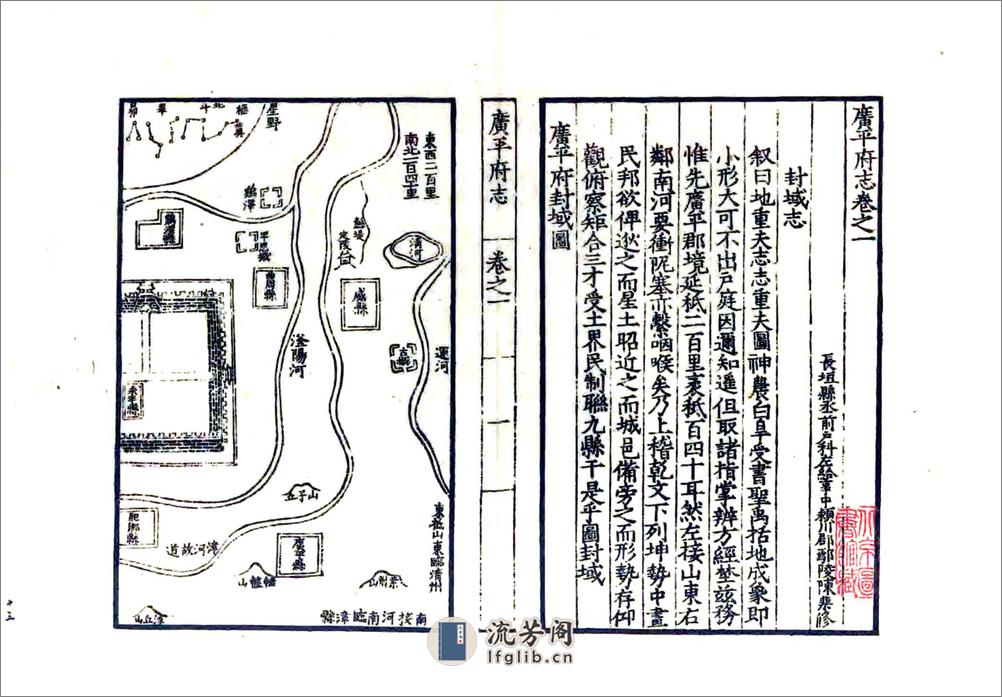 廣平府志卷之一
長垣縣丞前戶科左給事中潁川郡鄢陵陳棐修
封域志
叙曰地重夫志志重夫圖神農白阜受書聖禹括地成象即
小形大可不出戶庭因邇知遐但取諸指掌辨方經埜兹務
惟先廣平郡境延秖二百里袤秖百四十耳然左接山東右
鄰南河要衝阨塞亦繫咽喉矣乃上稽乾文下列坤勢中畫
民邦欲俾逖之而星土昭近之而城邑備旁之而形勢存仰
觀俯察矩合三才受土界民制聯九縣于是乎圖封域
廣平府封域圖
廣平府志
卷之一
一
東西二百里
南北一百四十里
星野
樞
斗
畢
昴
雞澤
雞澤縣
平恩城
曲周縣
清河
威縣
運河
滏陽河
永年縣
山子丘
肥鄉縣
漳河故道
廣平縣
東抵山東臨清州
南接河南臨漳縣
十三
流芳阁
lfglib.cn